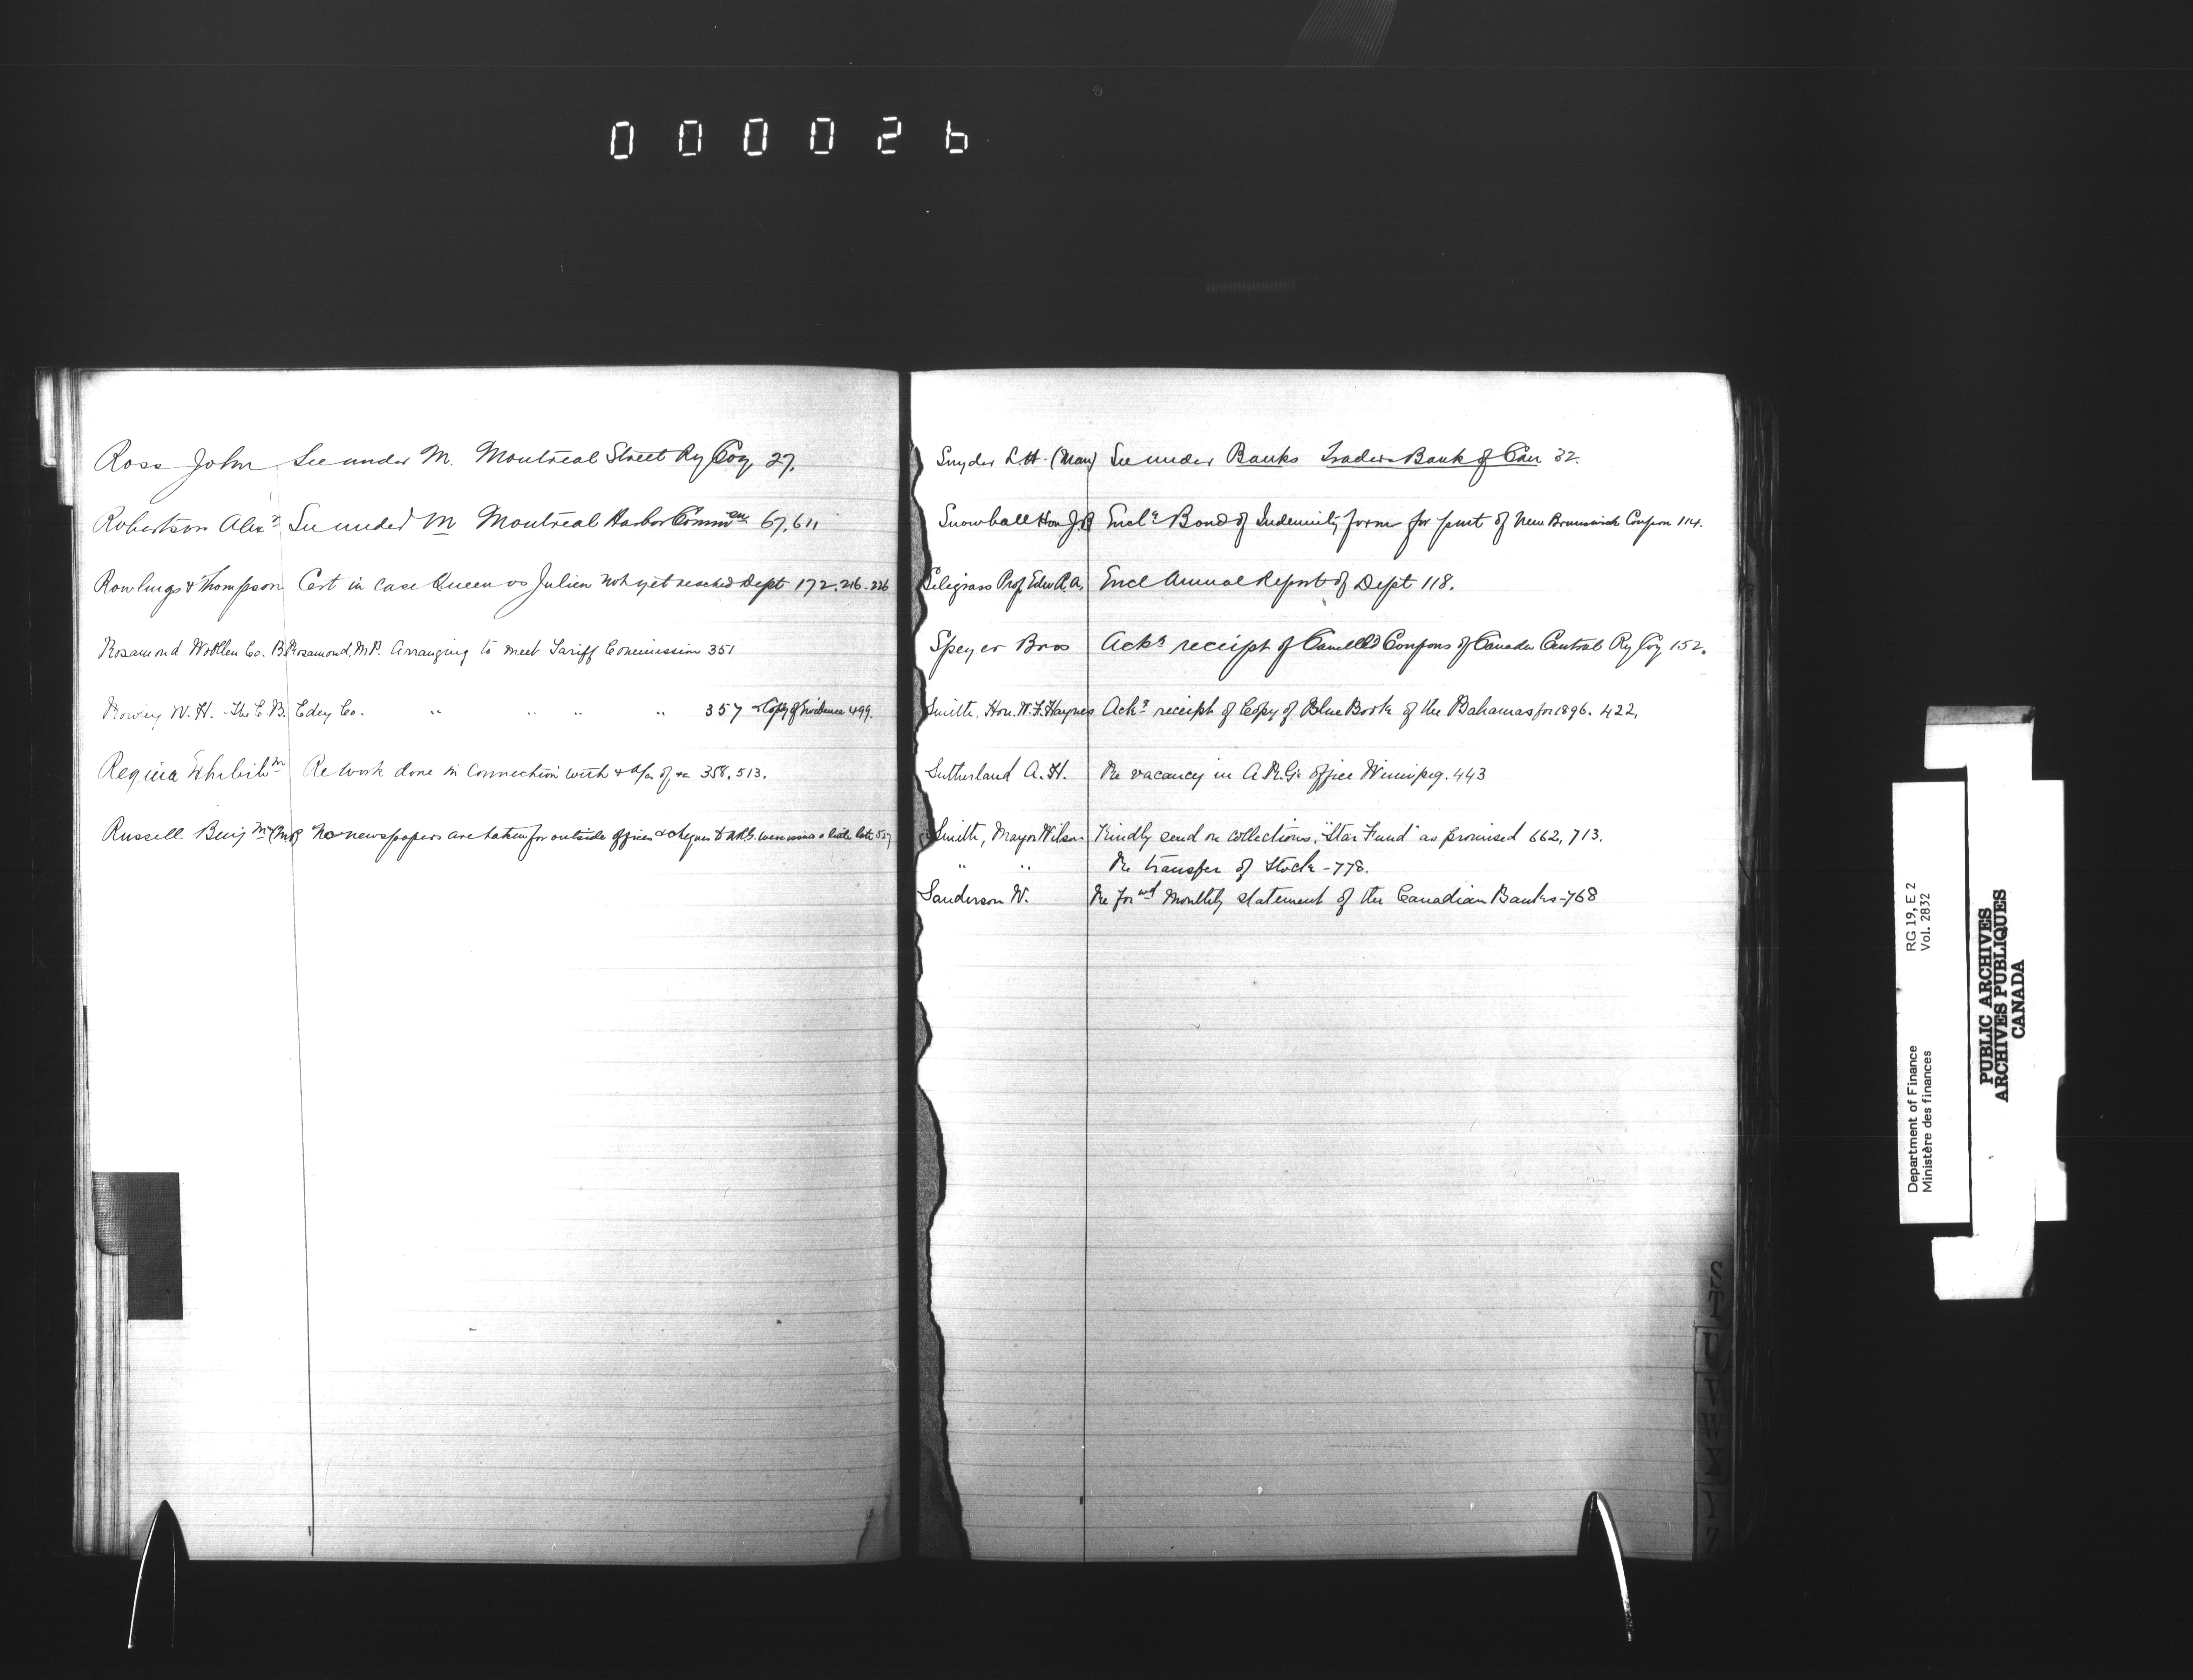 000026
Ross John See under M. Montreal Street Ry Coy 27.
Robertson Alexr See under M Montreal Harbor Commrs 67, 611
Rowlings & Thompson Cert in case Queen vs Julien not yet reached Dept 172. 216. 226
Rosamond Woollen Co. B. Rosamond, M.P. Arranging to meet Tariff Commission 351
Rowley W. H. - The E. B. Eddy Co. " " " " 357 & Copy of Evidence 499.
Regina Exhibitn Re work done in connection with & a/cs of, &c 358, 513.
Russell Benjmn (M.P.) No newspapers are taken for outside offices & cheques to were late
Snyder L. H. (Man) See under Banks Traders Bank of Can 32.
Snowball Hon J.B Encls Bond of Indemnity form for pmt of New Brunswick Coupon 114.
Prof. Edw. R. A. Encl Annual Report of Dept 118.
Speyer Bros Acks receipt of Cancelld Coupons of Canada Central Ry Coy 152.
Smith, Hon. W. F. Haynes Acks receipt of Copy of Blue Book of the Bahamas for 1896. 422.
Sutherland A. H. Re vacancy in A.R.G's office Winnipeg. 443
Smith, Mayor Wilson Kindly send on collections, "Star Fund" as promised 662, 713.
" " Re transfer of Stock - 778.
Sanderson W. Re forwd Monthly statement of the Canadian Banks - 768
S
T
U
V
W
X
Y
Z
Department of Finance RG 19, E 2
Ministère des finances Vol. 2832
PUBLIC ARCHIVES
ARCHIVES PUBLIQUES
CANADA